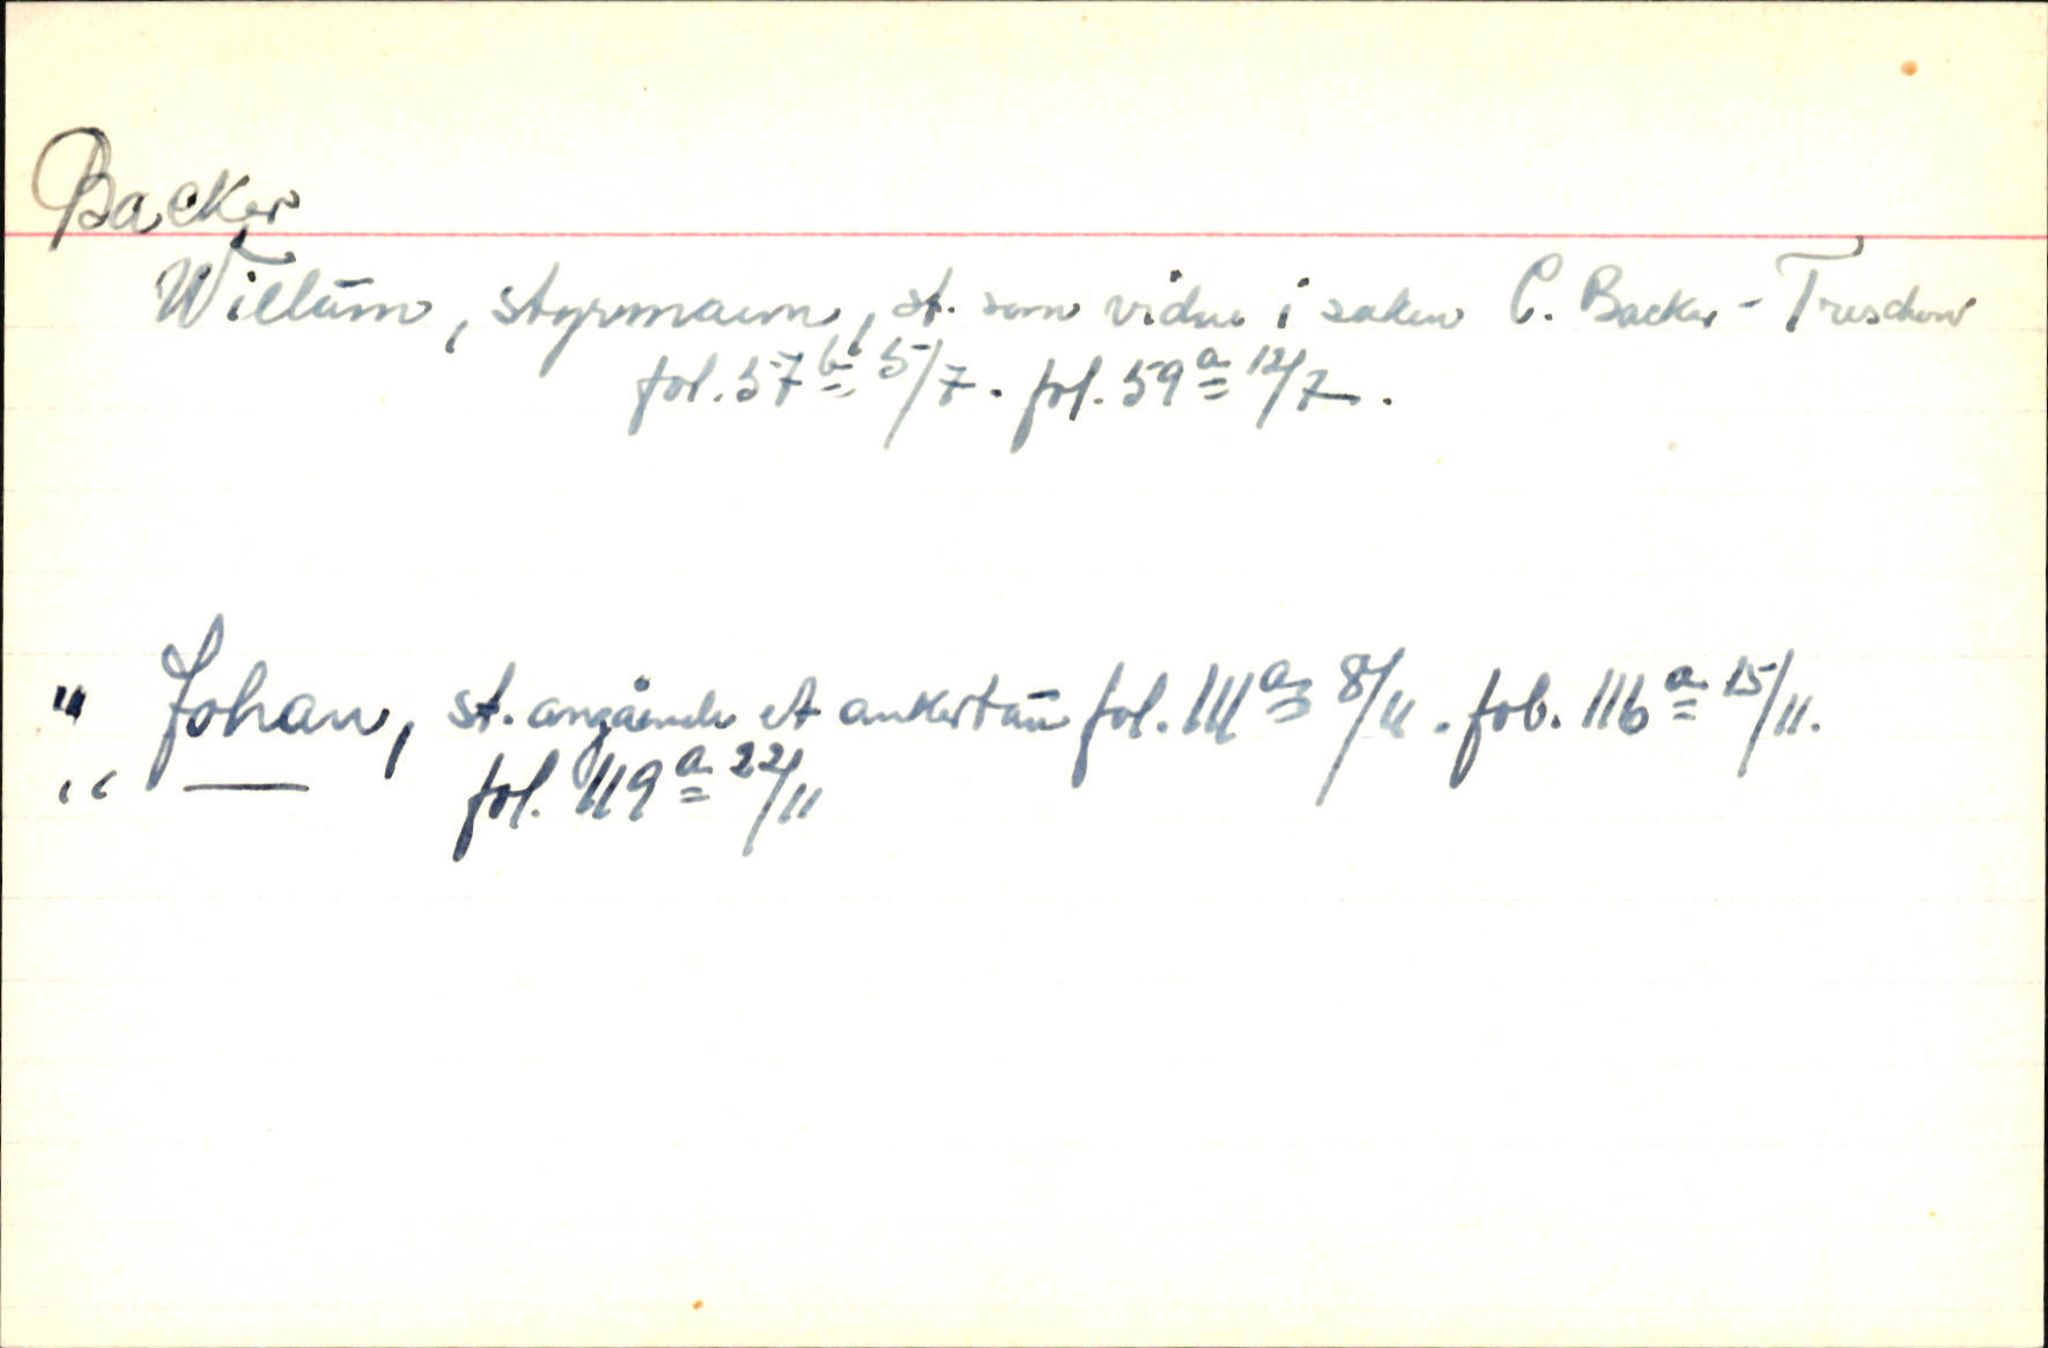 Backer
Willum, styrmann, st. som vidne i saken C. Backer - Treschow
fol. 57 b 5/7. fol. 59 a 12/7.
" Johan, st. angående et ankertau fol. 111 a 8/11. fol. 116 a 15/11.
" — fol. 119 a 22/11